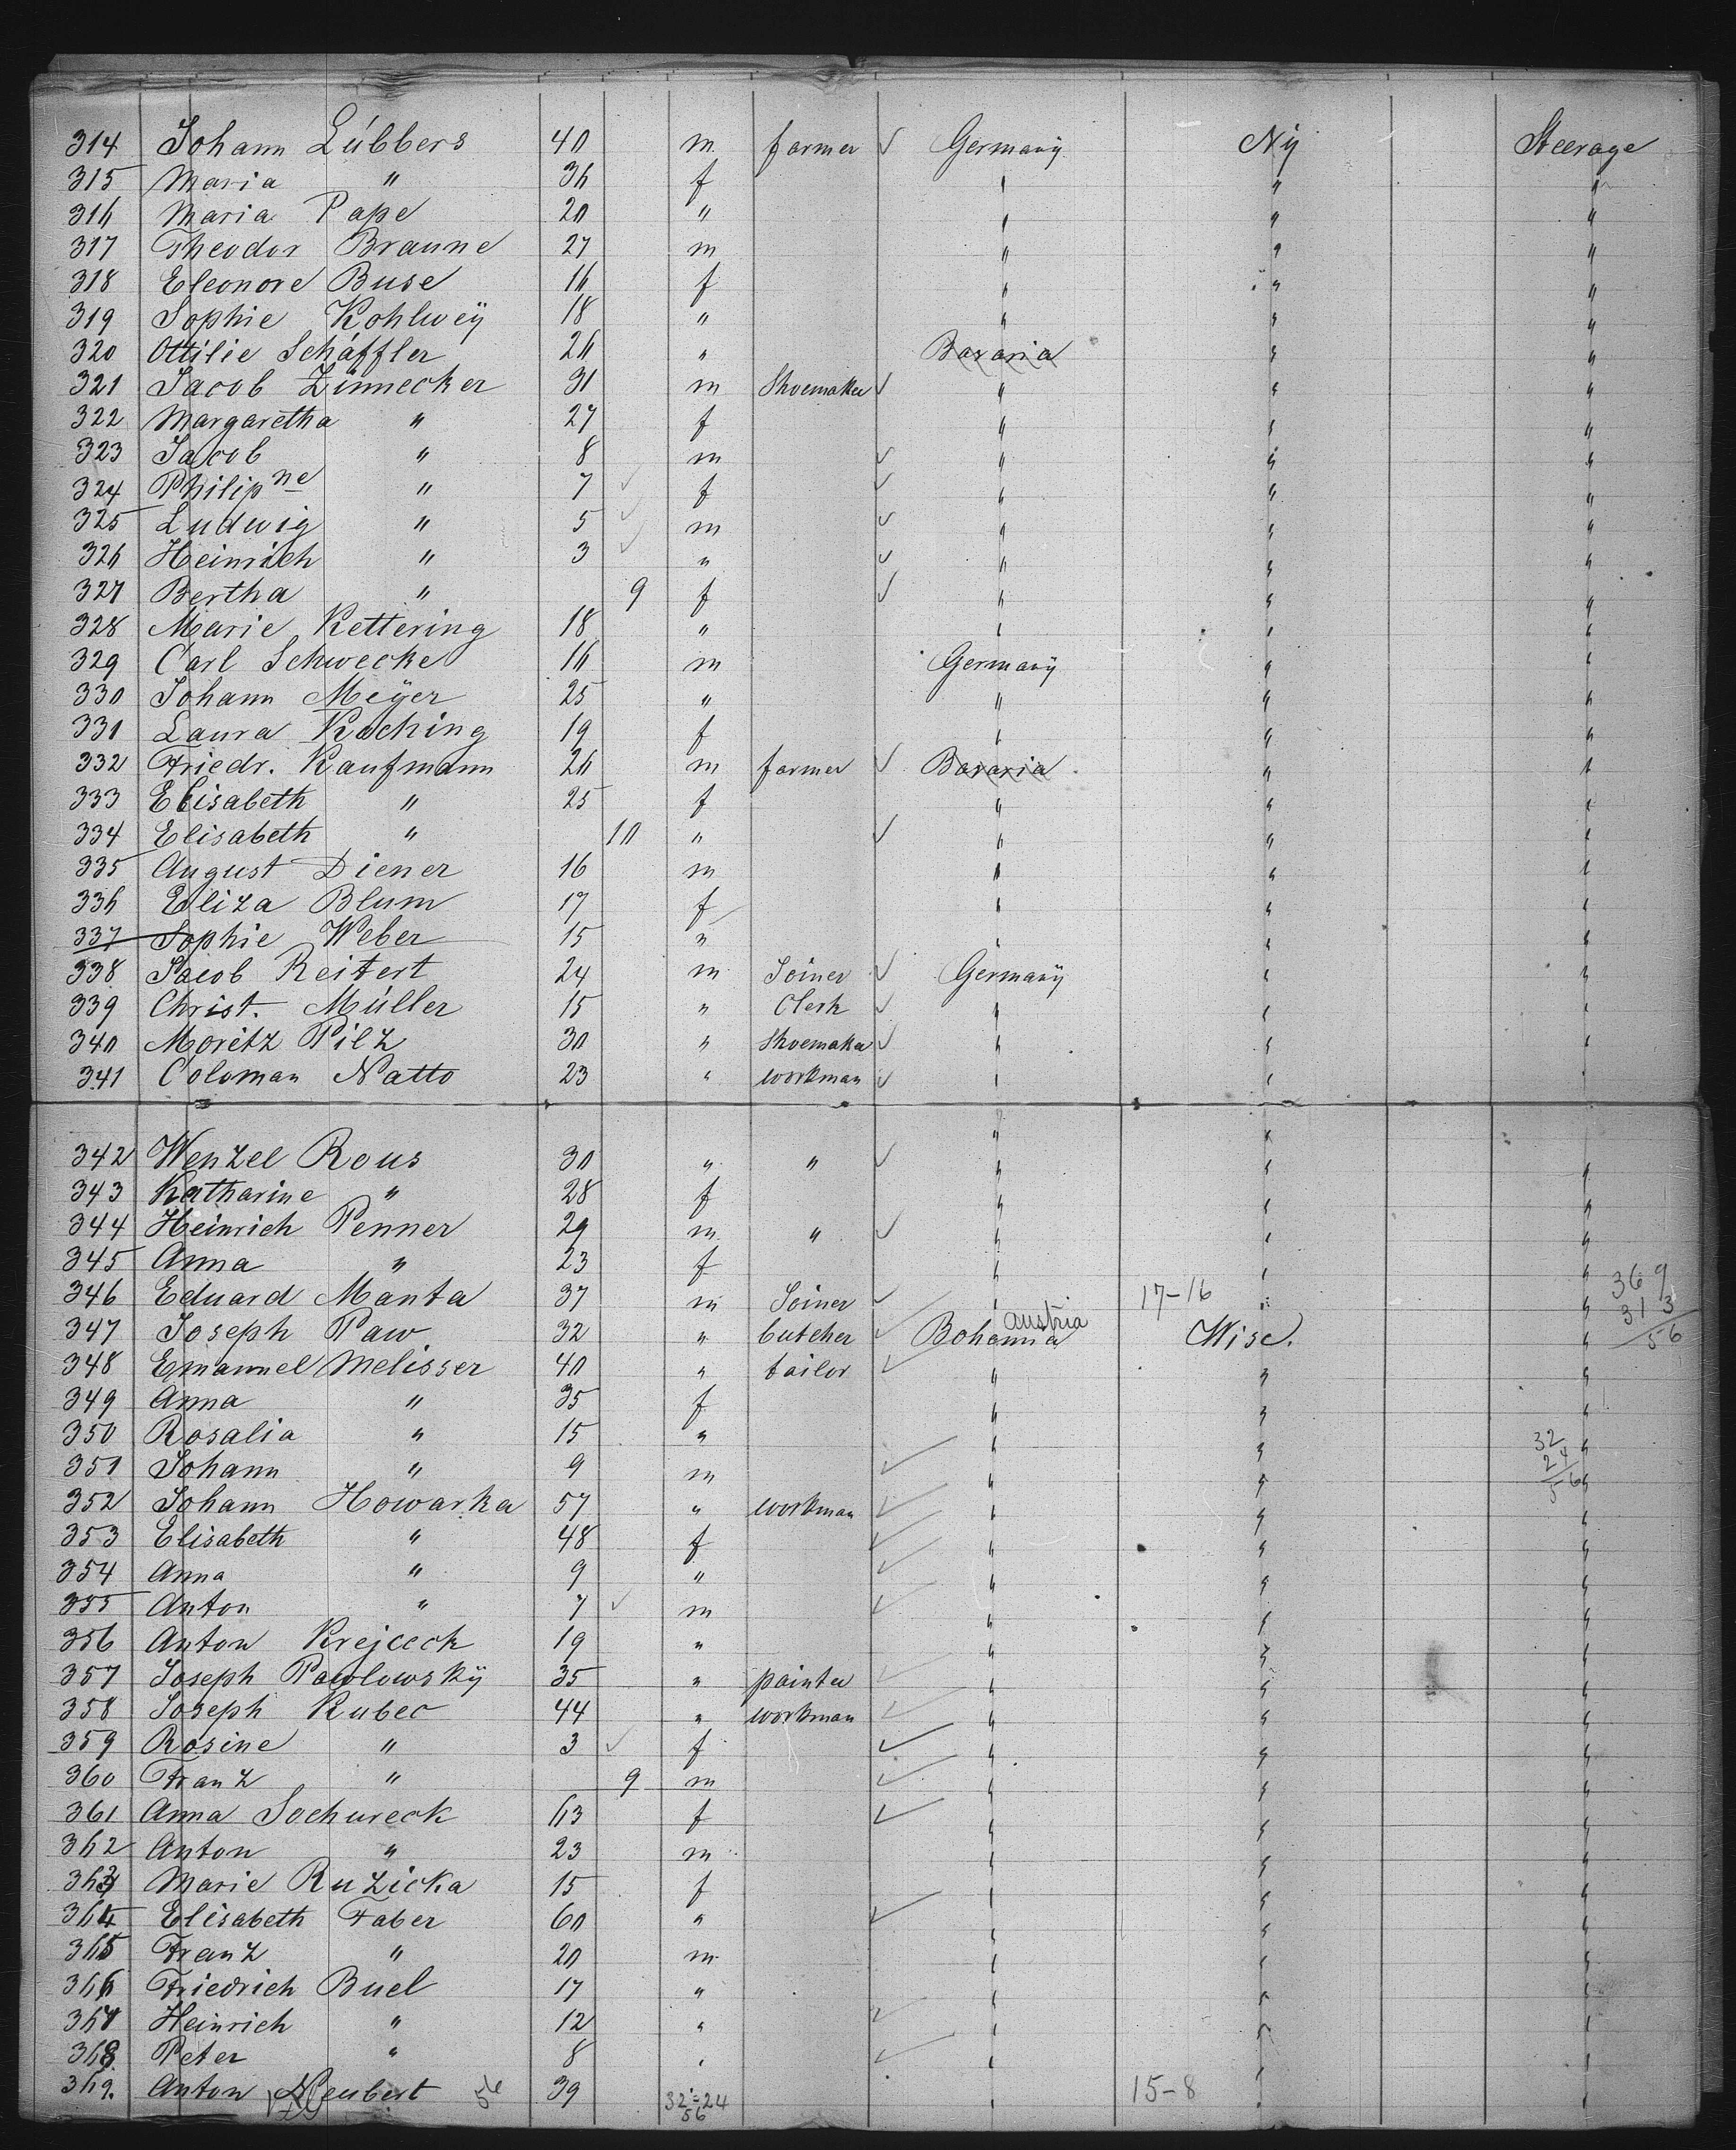 314 Johann Lübbers 40 m farmer ✓ Germany Ny Steerage
315 Maria " 36 f " " "
316 Maria Pape 20 " " " "
317 Theodor Braune 27 m " " "
318 Eleonore Buse 16 f " " "
319 Sophie Kohlwey 18 " " " "
320 Ottilie Schäffler 26 " Bavaria " "
321 Jacob Zinnecker 31 m Shoemaker ✓ " " "
322 Margaretha " 27 f " " "
323 Jacob " 8 m ✓ " " "
324 Philipne " 7 ✓ f ✓ " " "
325 Ludwig " 5 ✓ m ✓ " " "
326 Heinrich " 3 ✓ " ✓ " " "
327 Bertha " 9 f ✓ " " "
328 Marie Kettering 18 " " " "
329 Carl Schwecke 16 m Germany " "
330 Johann Meyer 25 " " " "
331 Laura Kaching 19 f " " "
332 Friedr. Kaufmann 26 m farmer ✓ Bavaria " "
333 Elisabeth " 25 f " " "
334 Elisabeth " 10 " ✓ " " "
335 August Diener 16 m " " "
336 Eliza Blum 17 f " " "
337 Sophie Weber 15 " " " "
338 Jacob Reitert 24 m Joiner ✓ Germany " "
339 Christ. Müller 15 " Clerk ✓ " " "
340 Moritz Pilz 30 " Shoemaker ✓ " " "
341 Coloman Natto 23 " workman ✓ " " "
342 Wenzel Rous 30 " " ✓ " " "
343 Katharine " 28 f " " "
344 Heinrich Penner 29 m " ✓ " " "
345 Anna " 23 f " " "
346 Eduard Manta 37 m Joiner ✓ " 17-16 " " 369
313
347 Joseph Paw 32 " butcher ✓ Bohemia Austria Wisc. " 56
348 Emanuel Melisser 40 " tailor ✓ " " "
349 Anna " 35 f " " "
350 Rosalia " 15 " " " 32 "
24
351 Johann " 9 m ✓ " " 56 "
352 Johann Howarka 57 " workman ✓ " " "
353 Elisabeth " 48 f ✓ " " "
354 Anna " 9 " ✓ " " "
355 Anton " 7 ✓ m ✓ " " "
356 Anton Krejceck 19 " " " "
357 Joseph Pawlowsky 35 " painter ✓ " " "
358 Joseph Kubec 44 " workman ✓ " " "
359 Rosine " 3 ✓ f ✓ " " "
360 Franz " 9 m ✓ " " "
361 Anna Sochureck 63 f ✓ " " "
362 Anton " 23 m " " "
363 Marie Ruzicka 15 f " " "
364 Elisabeth Faber 60 " ✓ " " "
365 Franz " 20 m " " "
366 Friedrich Buel 17 " " " "
367 Heinrich " 12 " ✓ " " "
368 Peter " 8 " ✓ " " "
369. Anton Neubert 56 39 32-24 " 15-8 " "
56